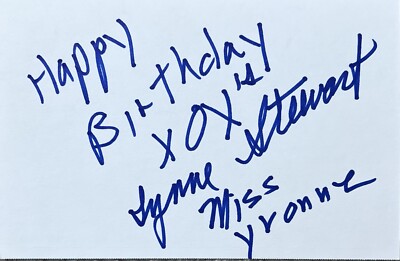 Happy
Birthday
XOX's
Lynne Stewart
Miss
Yvonne